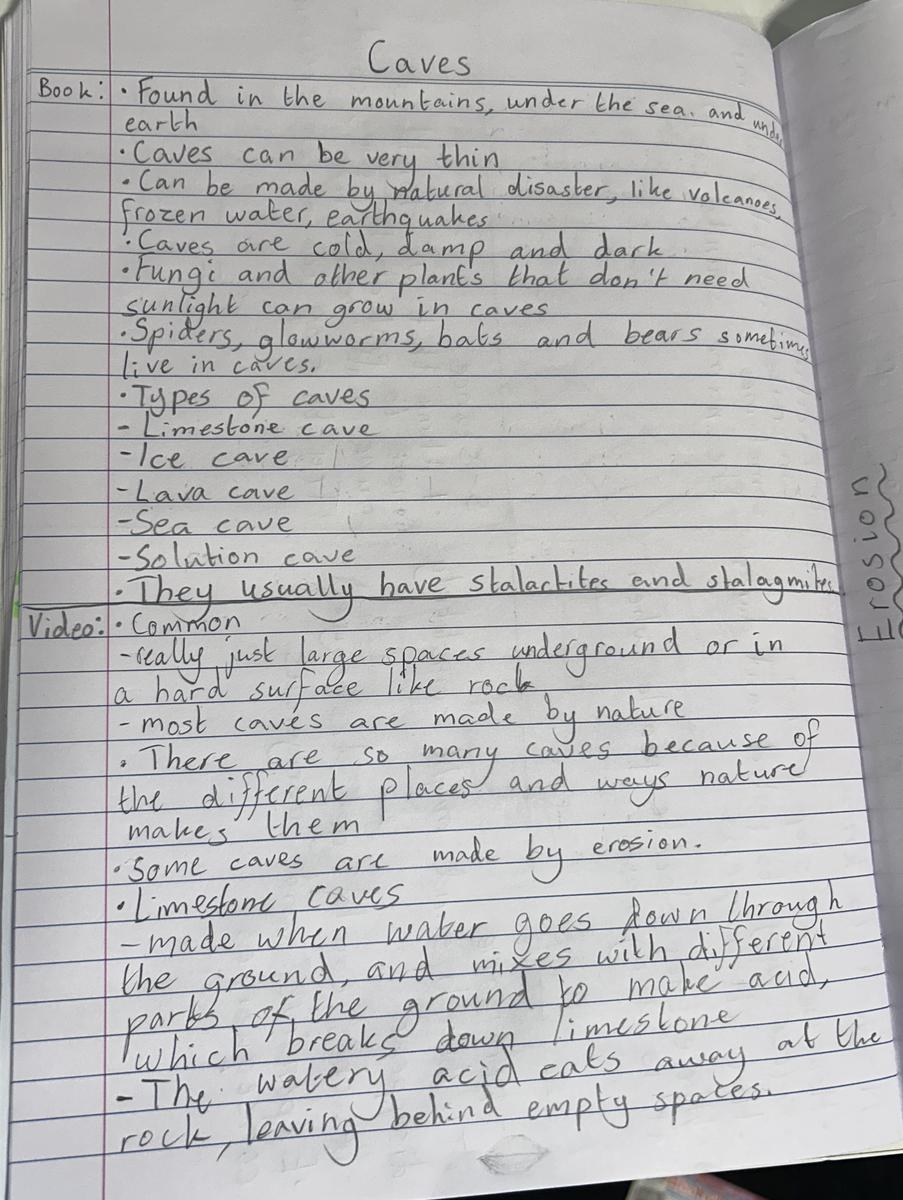 Caves
Book: • Found in the mountains, under the sea. and under
earth
• Caves can be very thin
• Can be made by natural disaster, like volcanoes,
frozen water, earthquakes
• Caves are cold, damp and dark
• Fungi and other plants that don't need
sunlight can grow in caves
• Spiders, glowworms, bats and bears sometimes
live in caves.
• Types of caves
- Limestone cave
- Ice cave
- Lava cave
- Sea cave
- Solution cave
• They usually have stalactites and stalagmites
Video: • Common
- really just large spaces underground or in
a hard surface like rock
- most caves are made by nature
• There are so many caves because of
the different places and ways nature
makes them
• Some caves are made by erosion.
• Limestone caves
- made when water goes down through
the ground, and mixes with different
parts of the ground to make acid,
which breaks down limestone
- The watery acid eats away at the
rock, leaving behind empty spaces.
Erosion